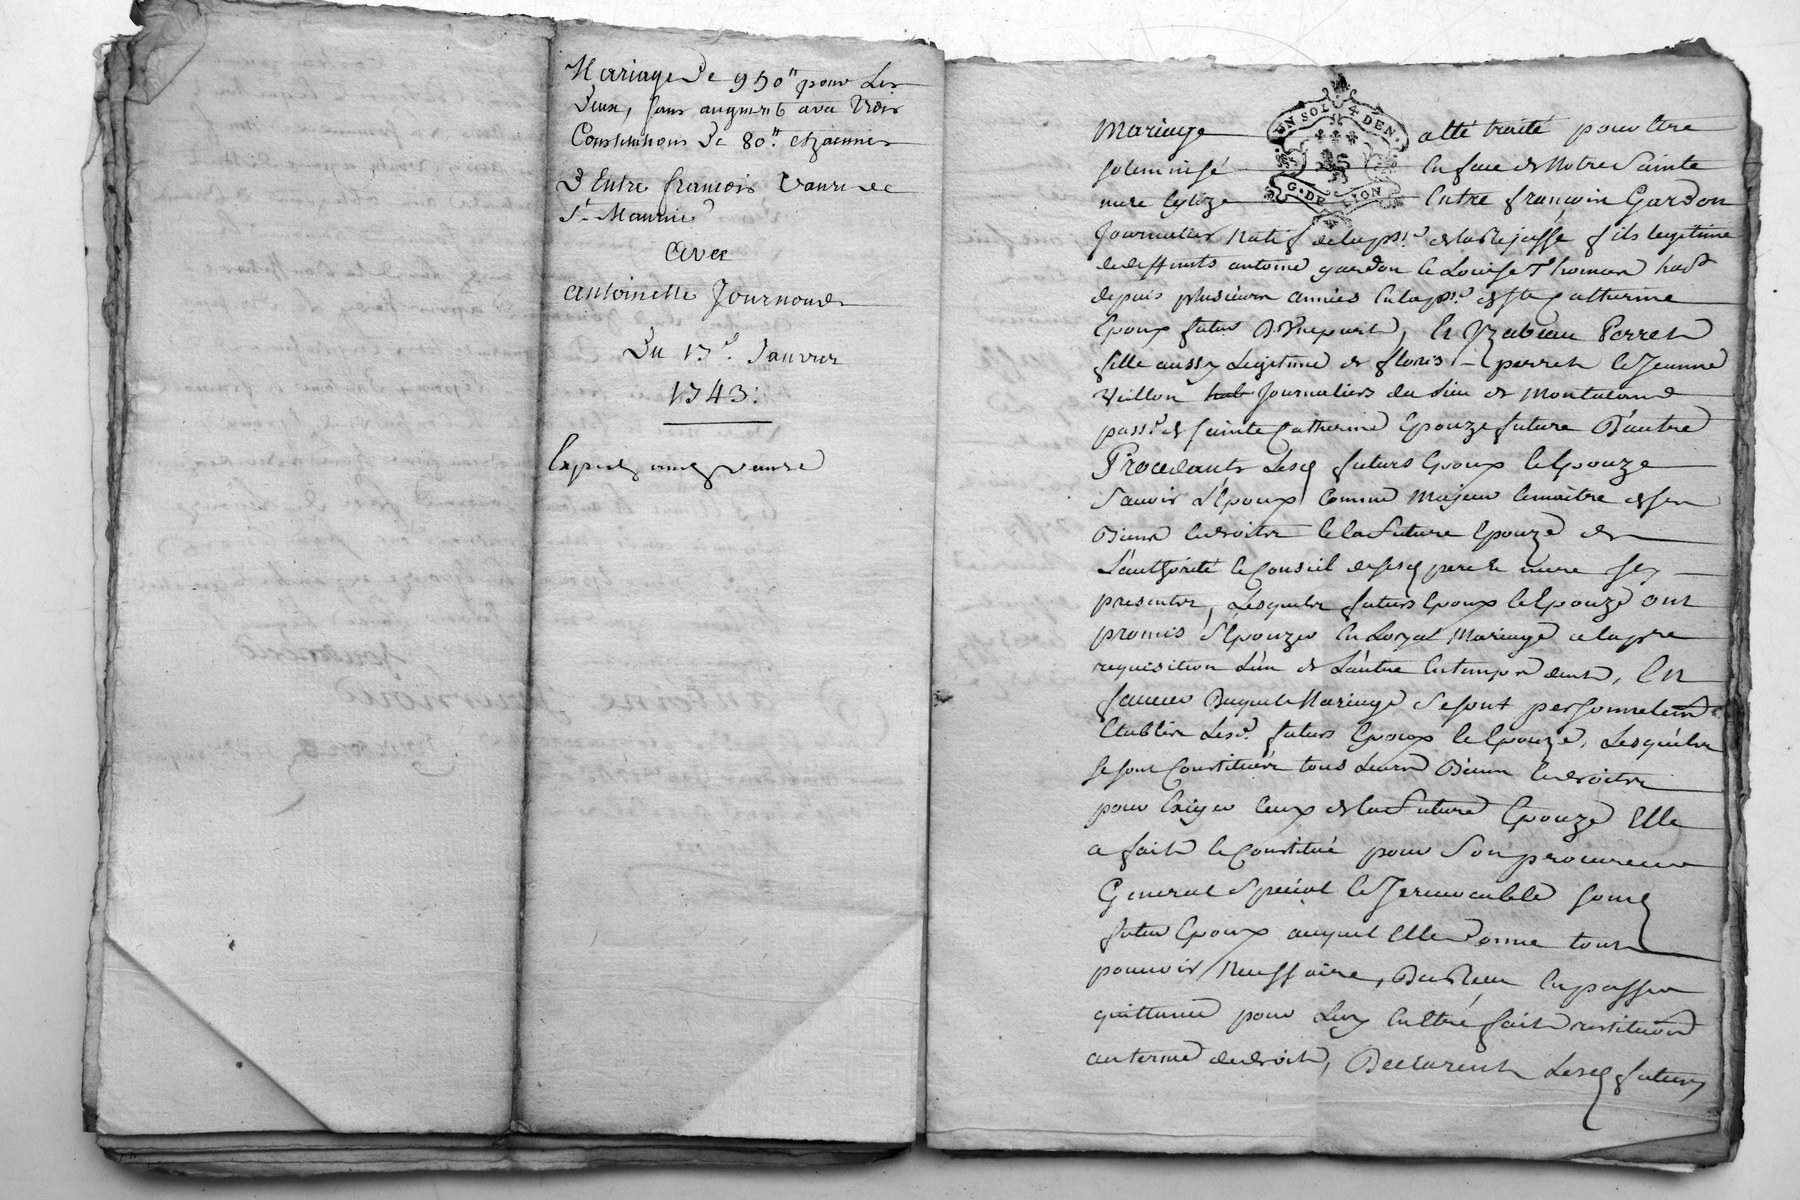 Mariage de 950ᵗᵗ pour les
Deux, sans augment avec trois
Constitutions de 80ᵗᵗ
D'Entre françois de
Sᵗ Maurice
Avec
Antoinette Journoud
Du 13ᵉ. Janvier
1743.
UN SOL 4 DEN.
G. DE LION
Mariage a été traité pour être
solemnisé en face de Notre Sainte
mere Eglize Entre françois Gardon
Journalier Natif de la pssᵉ de la Rejasse fils legitime
de deffunts antoine gardon et Louise Thomas
depuis plusieurs années en la pssᵉ de Ste Catherine
Epoux futur D'Unepart, et Yzabeau Perret
fille aussy Legitime de floris perret et Jeanne
Veillon journaliers du lieu de
parrᵉ de Sainte Catherine Epouze future D'autre
Procedants Lesd futurs Epoux et Epouze
Savoir L'Epoux comme Majeur et maitre de ses
Biens et droits et la future Epouze de
L'authorité et Conseil de sesd pere et mere icy
presents, Lesquels futurs Epoux et Epouze ont
promis s'Epouzer en Loyal Mariage a la pre
requisition L'un de L'autre En
faveur Duquel Mariage Se sont personnelemt
Etablis Lesd. futurs Epoux et Epouze, Lesquels
se sont Constitués tous Leurs Biens et droits
pour Exiger Ceux de la future Epouze Elle
a fait et Constitué pour Son procureur
General Special et Jrrevocable sond
futur Epoux auquel Elle donne tout
pouvoir Necessaire, Du Receu En passer
quittance pour Luy En Etre fait restitution
au terme de droit, Declarent Lesd futurs